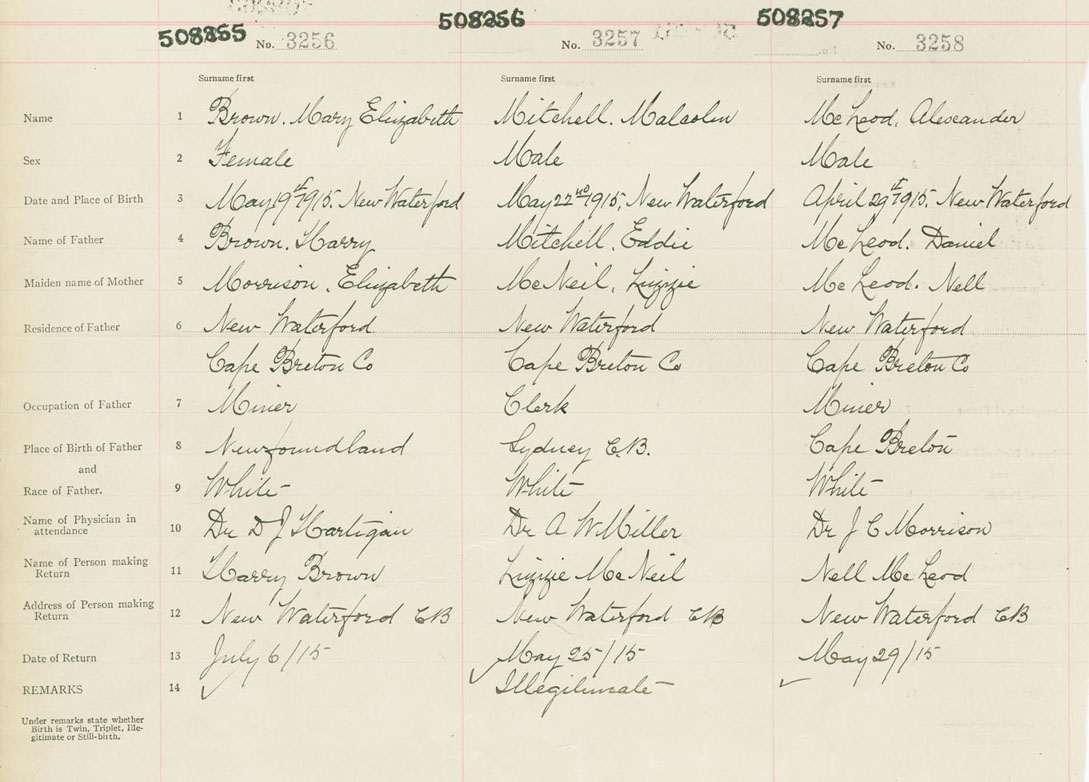 508255 508256 508257
No. 3256 No. 3257 No. 3258
Surname first Surname first Surname first
Name 1 Brown, Mary Elizabeth Mitchell, Malcolm McLeod, Alexander
Sex 2 Female Male Male
Date and Place of Birth 3 May 19th 1915, New Waterford May 22nd 1915, New Waterford April 29th 1915, New Waterford
Name of Father 4 Brown, Harry Mitchell, Eddie McLeod, Daniel
Maiden name of Mother 5 Morrison, Elizabeth McNeil, Lizzie McLeod, Nell
Residence of Father 6 New Waterford New Waterford New Waterford
Cape Breton Co Cape Breton Co Cape Breton Co
Occupation of Father 7 Miner Clerk Miner
Place of Birth of Father 8 Newfoundland Sydney C.B. Cape Breton
and
Race of Father. 9 White White White
Name of Physician in
attendance 10 Dr D J Hartigan Dr A W Miller Dr J C Morrison
Name of Person making
Return 11 Harry Brown Lizzie McNeil Nell McLeod
Address of Person making
Return 12 New Waterford CB New Waterford CB New Waterford CB
Date of Return 13 July 6/15 May 25/15 May 29/15
REMARKS 14 Illegitimate
Under remarks state whether
Birth is Twin, Triplet, Ille-
gitimate or Still-birth.